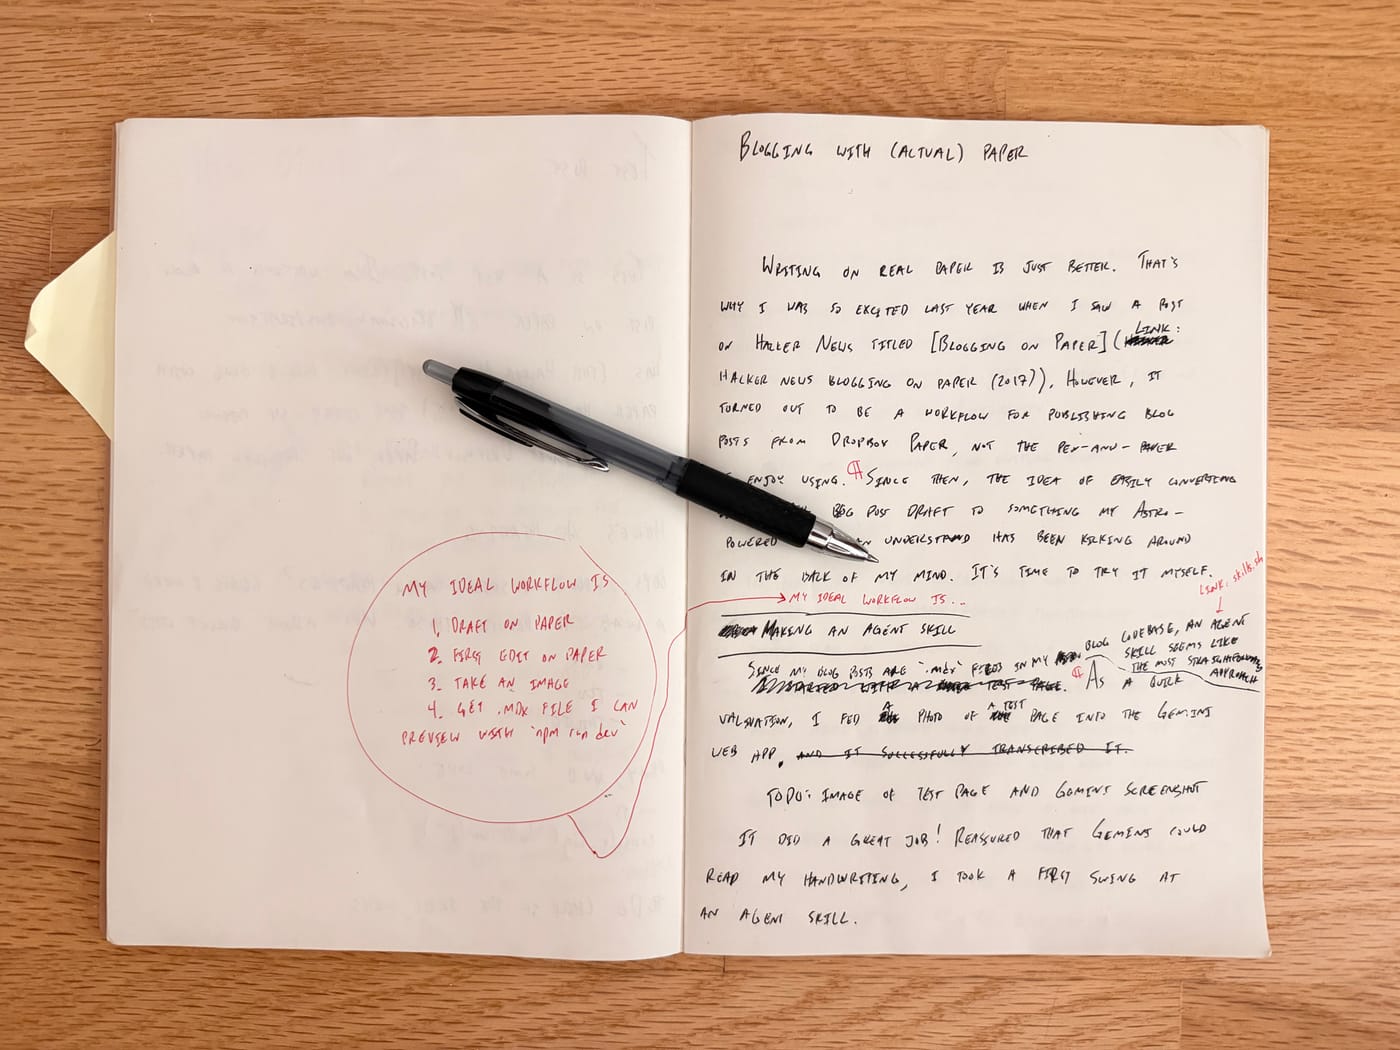 MY IDEAL WORKFLOW IS
1. DRAFT ON PAPER
2. FIRST EDIT ON PAPER
3. TAKE AN IMAGE
4. GET .MDX FILE I CAN
PREVIEW WITH `npm run dev`
BLOGGING WITH (ACTUAL) PAPER
WRITING ON REAL PAPER IS JUST BETTER. THAT'S
WHY I WAS SO EXCITED LAST YEAR WHEN I SAW A POST
LINK:
ON HACKER NEWS TITLED [BLOGGING ON PAPER](
HACKER NEWS BLOGGING ON PAPER (2017)). HOWEVER, IT
TURNED OUT TO BE A WORKFLOW FOR PUBLISHING BLOG
POSTS FROM DROPBOX PAPER, NOT THE PEN-AND-PAPER
ENJOY USING. ¶ SINCE THEN, THE IDEA OF EASILY CONVERTING
BLOG POST DRAFT TO SOMETHING MY ASTRO-
POWERED UNDERSTAND HAS BEEN KICKING AROUND
IN THE BACK OF MY MIND. IT'S TIME TO TRY IT MYSELF.
LINK: skills.sh
MY IDEAL WORKFLOW IS...
MAKING AN AGENT SKILL
SINCE MY BLOG POSTS ARE `.mdx` FILES IN MY BLOG CODEBASE, AN AGENT
SKILL SEEMS LIKE
THE MOST STRAIGHTFORWARD
APPROACH
STARTED WITH A TEST PAGE. ¶ AS A QUICK
VALIDATION, I FED A PHOTO OF A TEST PAGE INTO THE GEMINI
WEB APP. AND IT SUCCESSFULLY TRANSCRIBED IT.
TODO: IMAGE OF TEST PAGE AND GEMINI SCREENSHOT
IT DID A GREAT JOB! REASSURED THAT GEMINI COULD
READ MY HANDWRITING, I TOOK A FIRST SWING AT
AN AGENT SKILL.